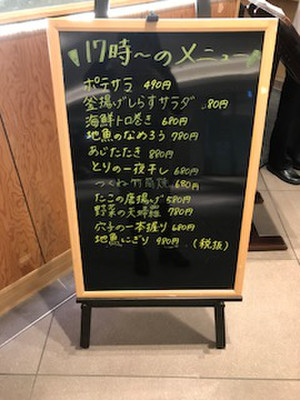 17時～のメニュー
ポテサラ 490円
釜揚げしらすサラダ 80円
海鮮トロ巻き 680円
地魚のなめろう 780円
あじたたき 880円
とりの一夜干し 680円
つくね 680円
たこの唐揚げ 580円
野菜の天婦羅 780円
穴子の一本握り 680円
地魚にぎり 980円 (税抜)